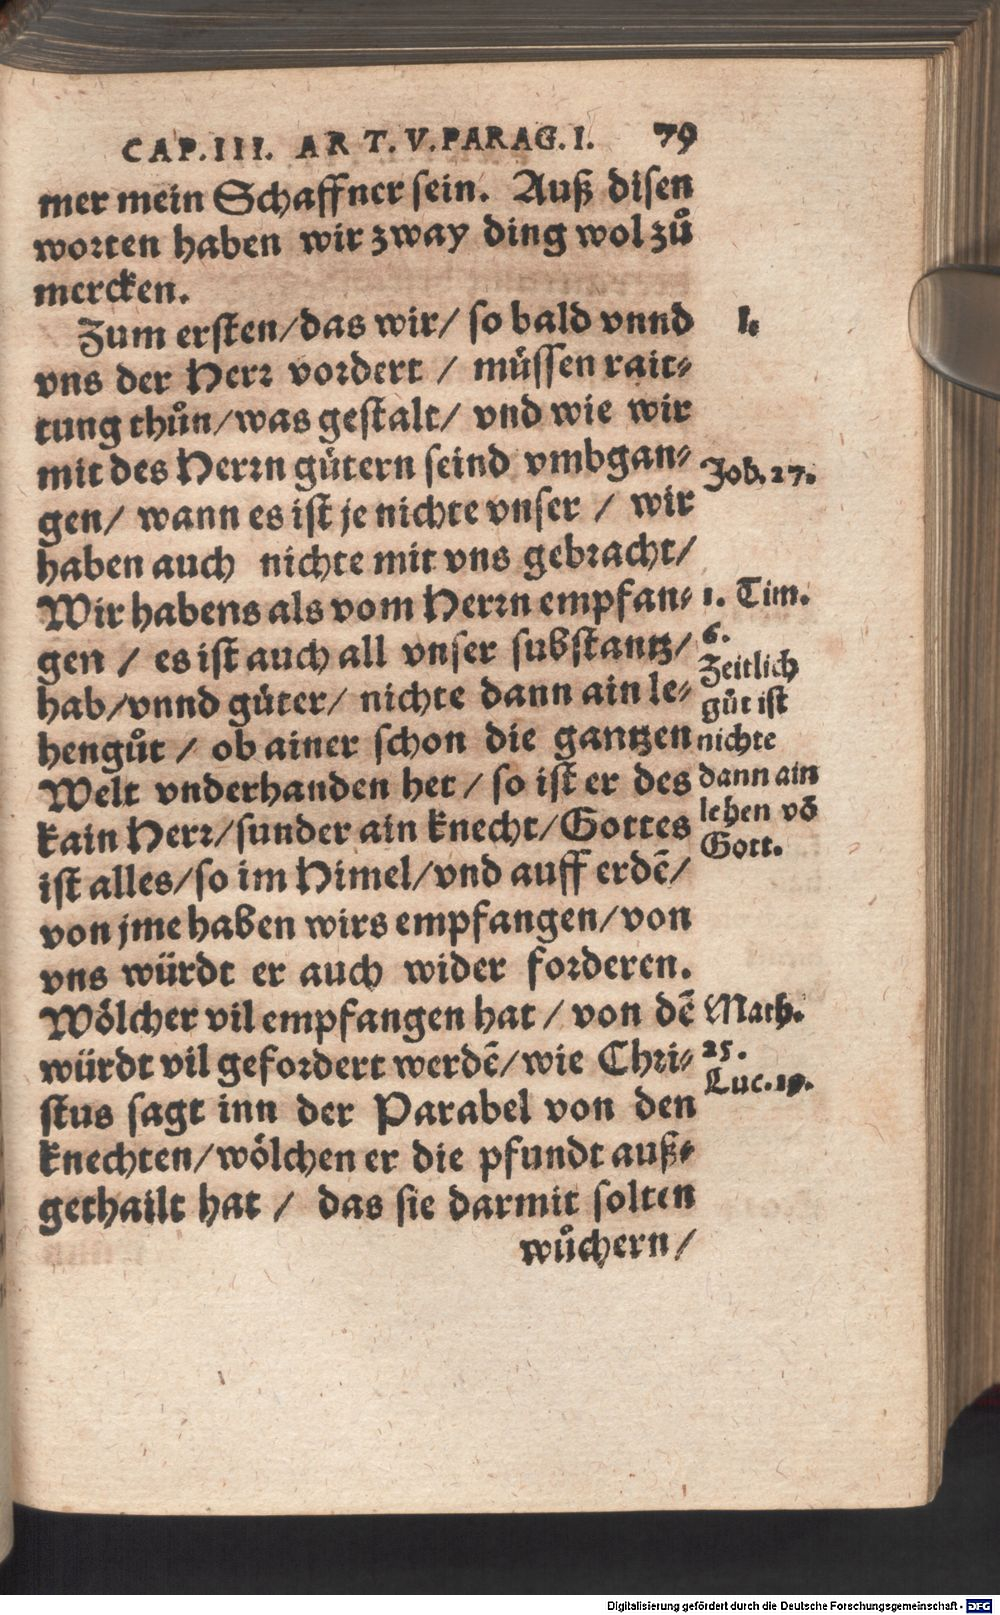 CAP.III. ART.V.PARAG.I. 79
mer mein Schaffner sein. Auß disen
worten haben wir zway ding wol zů
mercken.
Zum ersten/das wir/ so bald vnnd
vns der Herr vordert / müssen rait-
tung thůn/was gestalt/ vnd wie wir
mit des Herrn gütern seind vmbgan-
gen/ wann es ist je nichte vnser / wir
haben auch nichte mit vns gebracht/
Wir habens als vom Herrn empfan-
gen / es ist auch all vnser substantz/
hab/vnnd güter/ nichte dann ain le-
hengůt / ob ainer schon die gantzen
Welt vnderhanden het / so ist er des
kain Herr/sunder ain knecht/Gottes
ist alles/so im Himel/vnd auff erdē/
von jme haben wirs empfangen/von
vns würdt er auch wider forderen.
Wölcher vil empfangen hat / von dē
würdt vil gefordert werdē/wie Chri-
stus sagt inn der Parabel von den
knechten/wölchen er die pfundt auß-
gethailt hat / das sie darmit solten
wůchern/
I.
Job. 27.
1. Tim.
6.
Zeitlich
gůt ist
nichte
dann ain
lehen vō
Gott.
Math.
25.
Luc. 19.
Digitalisierung gefördert durch die Deutsche Forschungsgemeinschaft - DFG